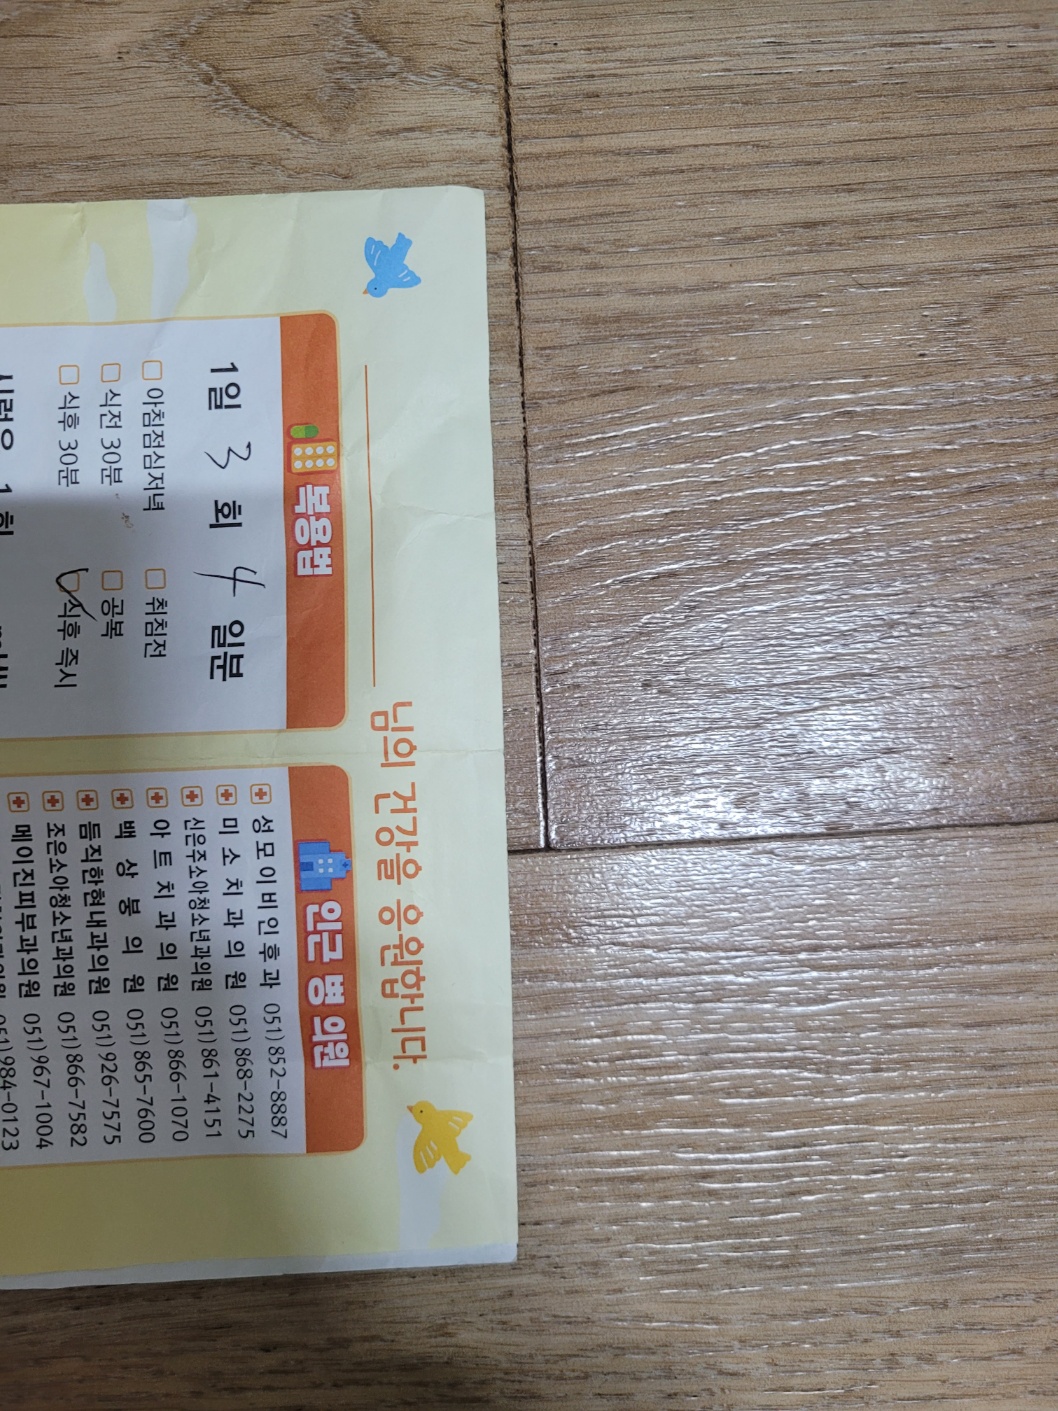 님의 건강을 응원합니다.
복용법
1일 3 회 4 일분
아침점심저녁 취침전
식전 30분 공복
식후 30분 식후 즉시
인근 병 의원
성모이비인후과 051)852-8887
미소치과의원 051)868-2275
신은주소아청소년과의원 051)861-4151
아트치과의원 051)866-1070
백상봉의원 051)865-7600
듬직한현내과의원 051)926-7575
조은소아청소년과의원 051)866-7582
메이진피부과의원 051)967-1004
051)984-0123